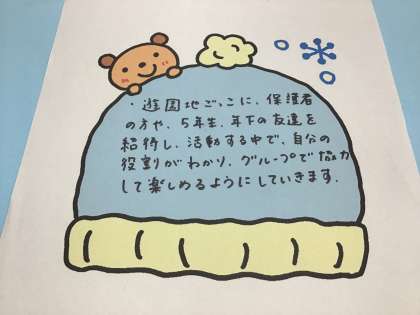 ・遊園地ごっこに、保護者
の方や、5年生、年下の友達を
招待し、活動する中で、自分の
役割がわかり、グループで協力
して楽しめるようにしていきます。